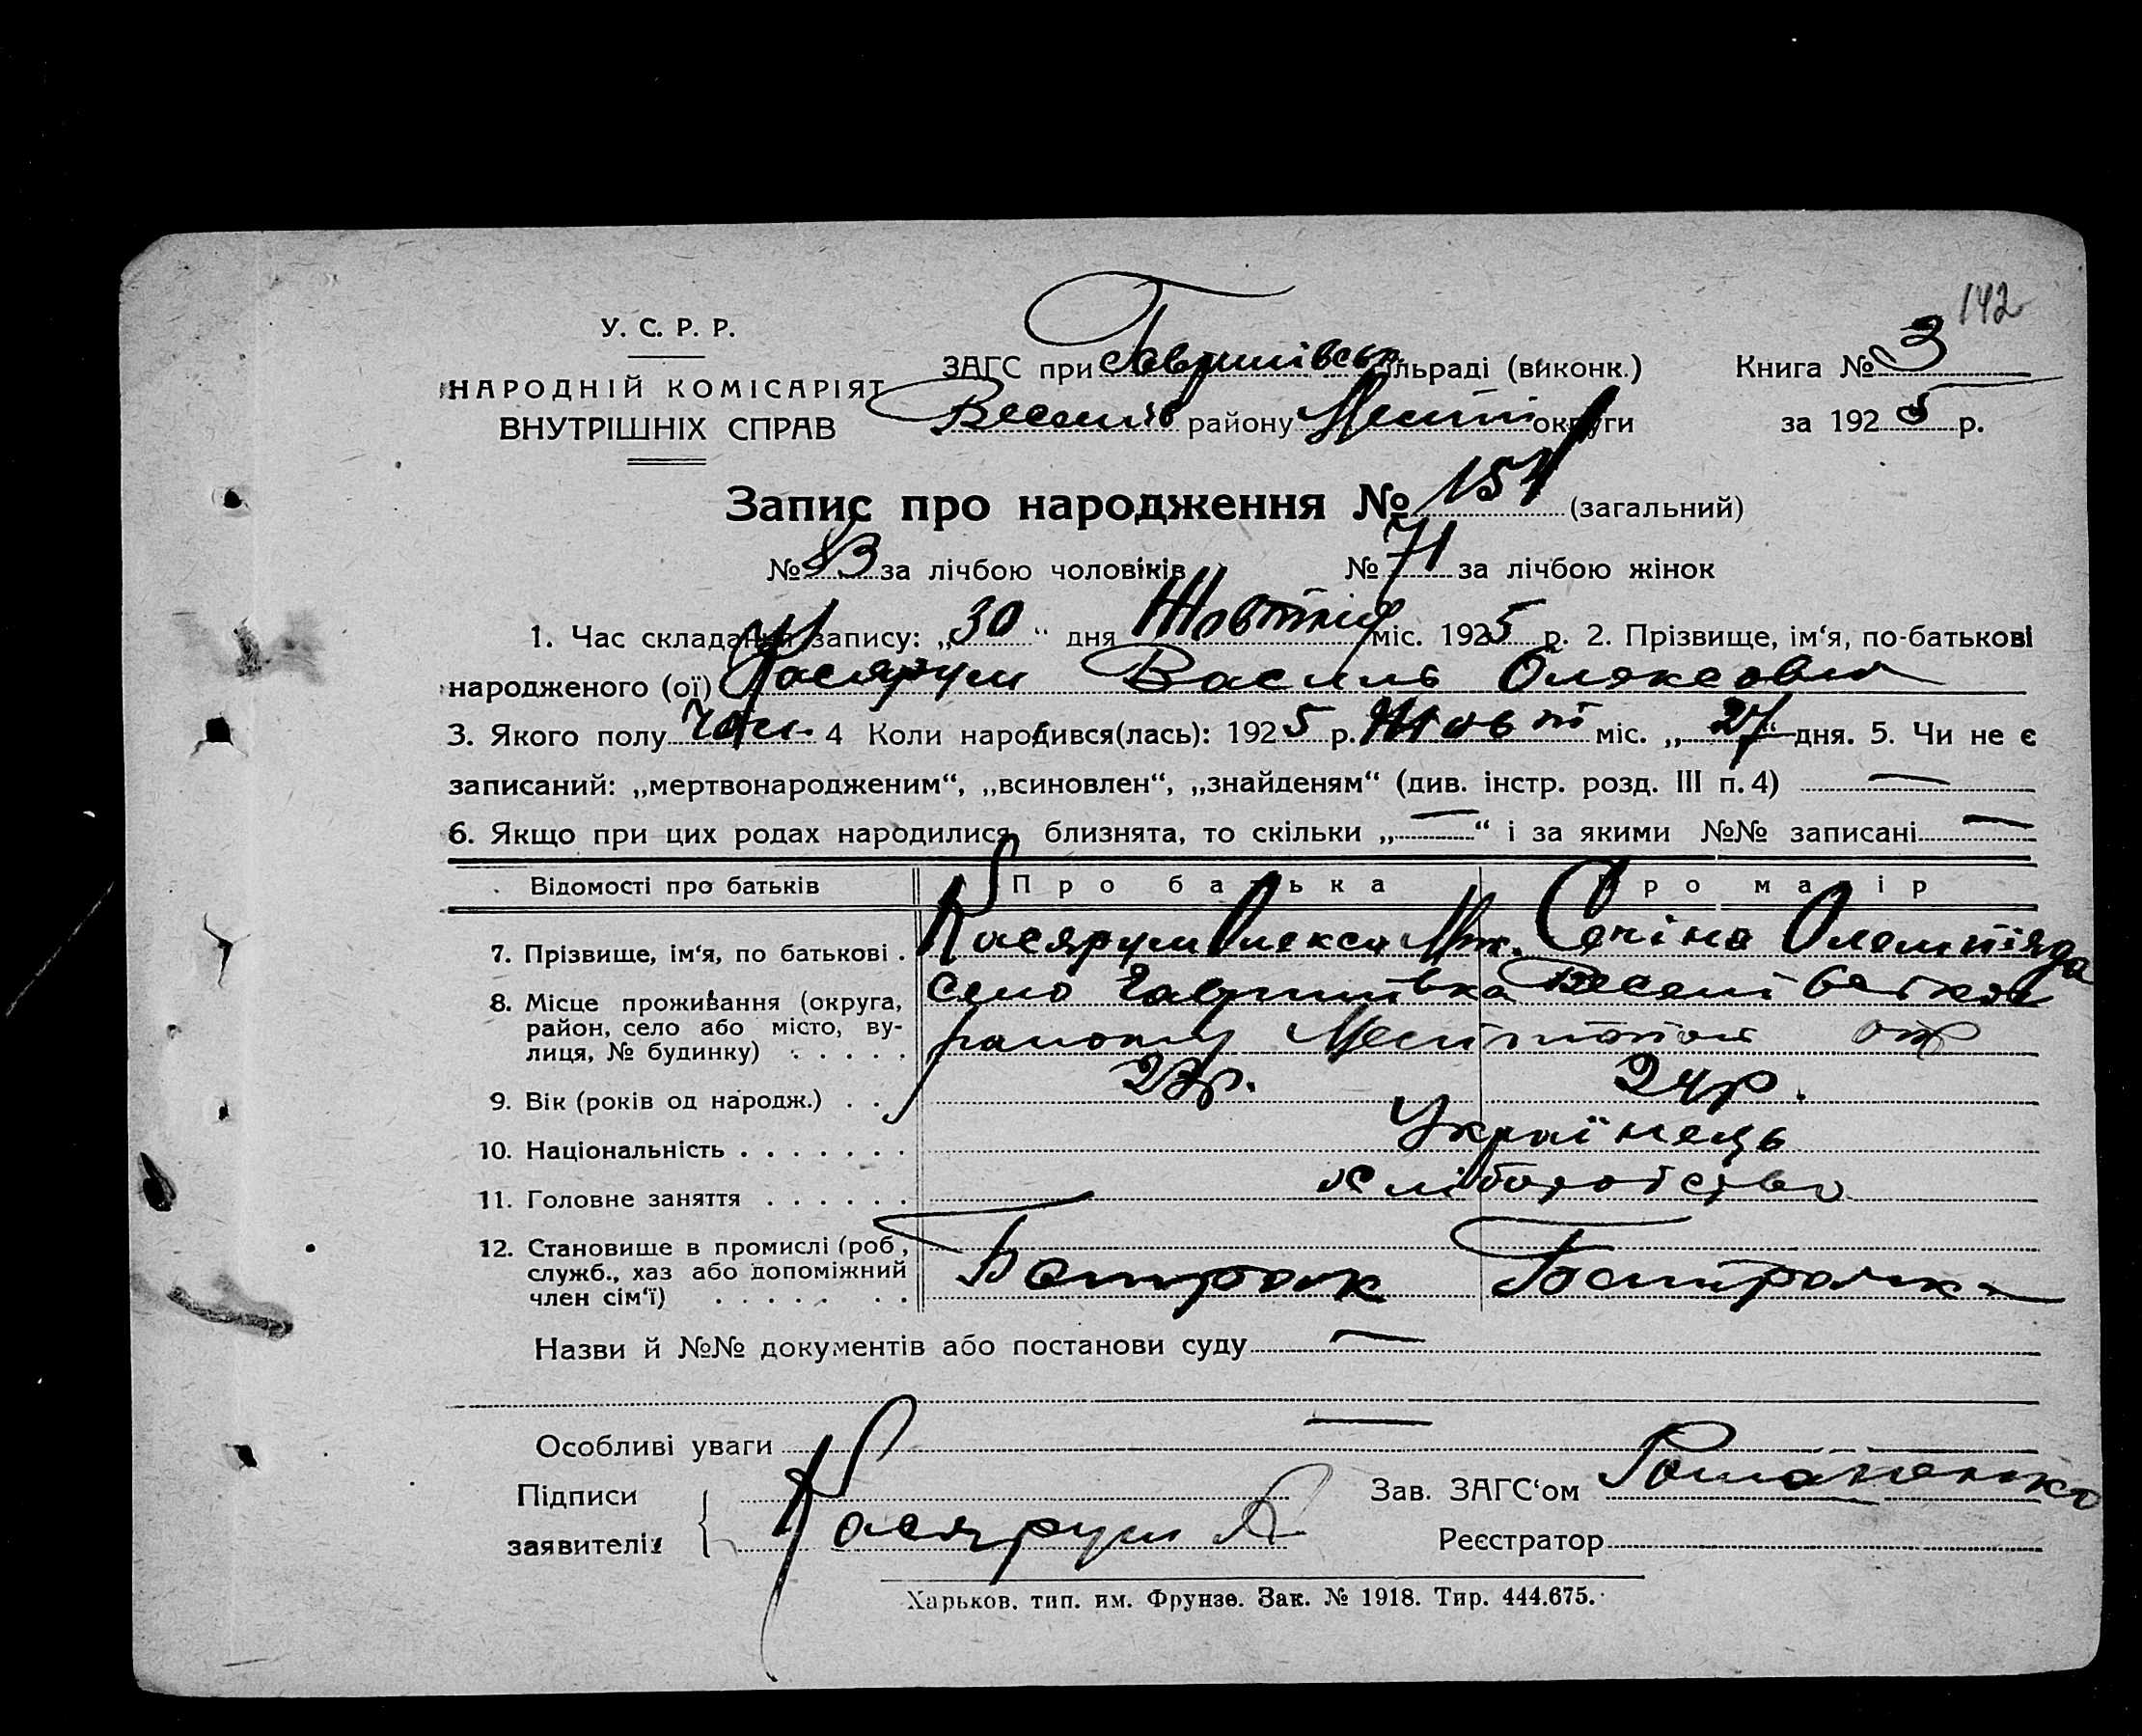 142
У. С. Р. Р.
НАРОДНІЙ КОМІСАРІЯТ
ВНУТРІШНІХ СПРАВ
ЗАГС при Гаврилівськ сільраді (виконк.)
району Меліт округи
Книга № 3
за 1925 р.
Запис про народження № 154 (загальний)
№ 83 за лічбою чоловіків № 71 за лічбою жінок
1. Час складання запису: „30“ дня Жовтня міс. 1925 р. 2. Прізвище, ім‘я, по-батькові
народженого (ої) Василь
3. Якого полу чол. 4 Коли народився(лась): 1925 р. Жовт міс. „27“ дня. 5. Чи не є
записаний: „мертвонародженим“, „всиновлен“, „знайденям“ (див. інстр. розд. III п. 4) —
6. Якщо при цих родах народилися близнята, то скільки „—“ і за якими №№ записані —
Відомості про батьків Про батька Про матір
7. Прізвище, ім‘я, по батькові . Олекса
8. Місце проживання (округа, район, село або місто, вулиця, № будинку) . . . . . село Гаврилівка
району
9. Вік (років од народж.) . . 24р.
10. Національність . . . . . . . Українець
11. Головне заняття . . . . . . хліборобство
12. Становище в промислі (роб, служб., хаз або допоміжний член сім‘ї) . . . . . . . Батрак Батрачка
Назви й №№ документів або постанови суду —
Особливі уваги —
Підписи
заявителів
Зав. ЗАГС‘ом Романенко
Реєстратор
Харьков. тип. им. Фрунзе. Зак. № 1918. Тир. 444.675.